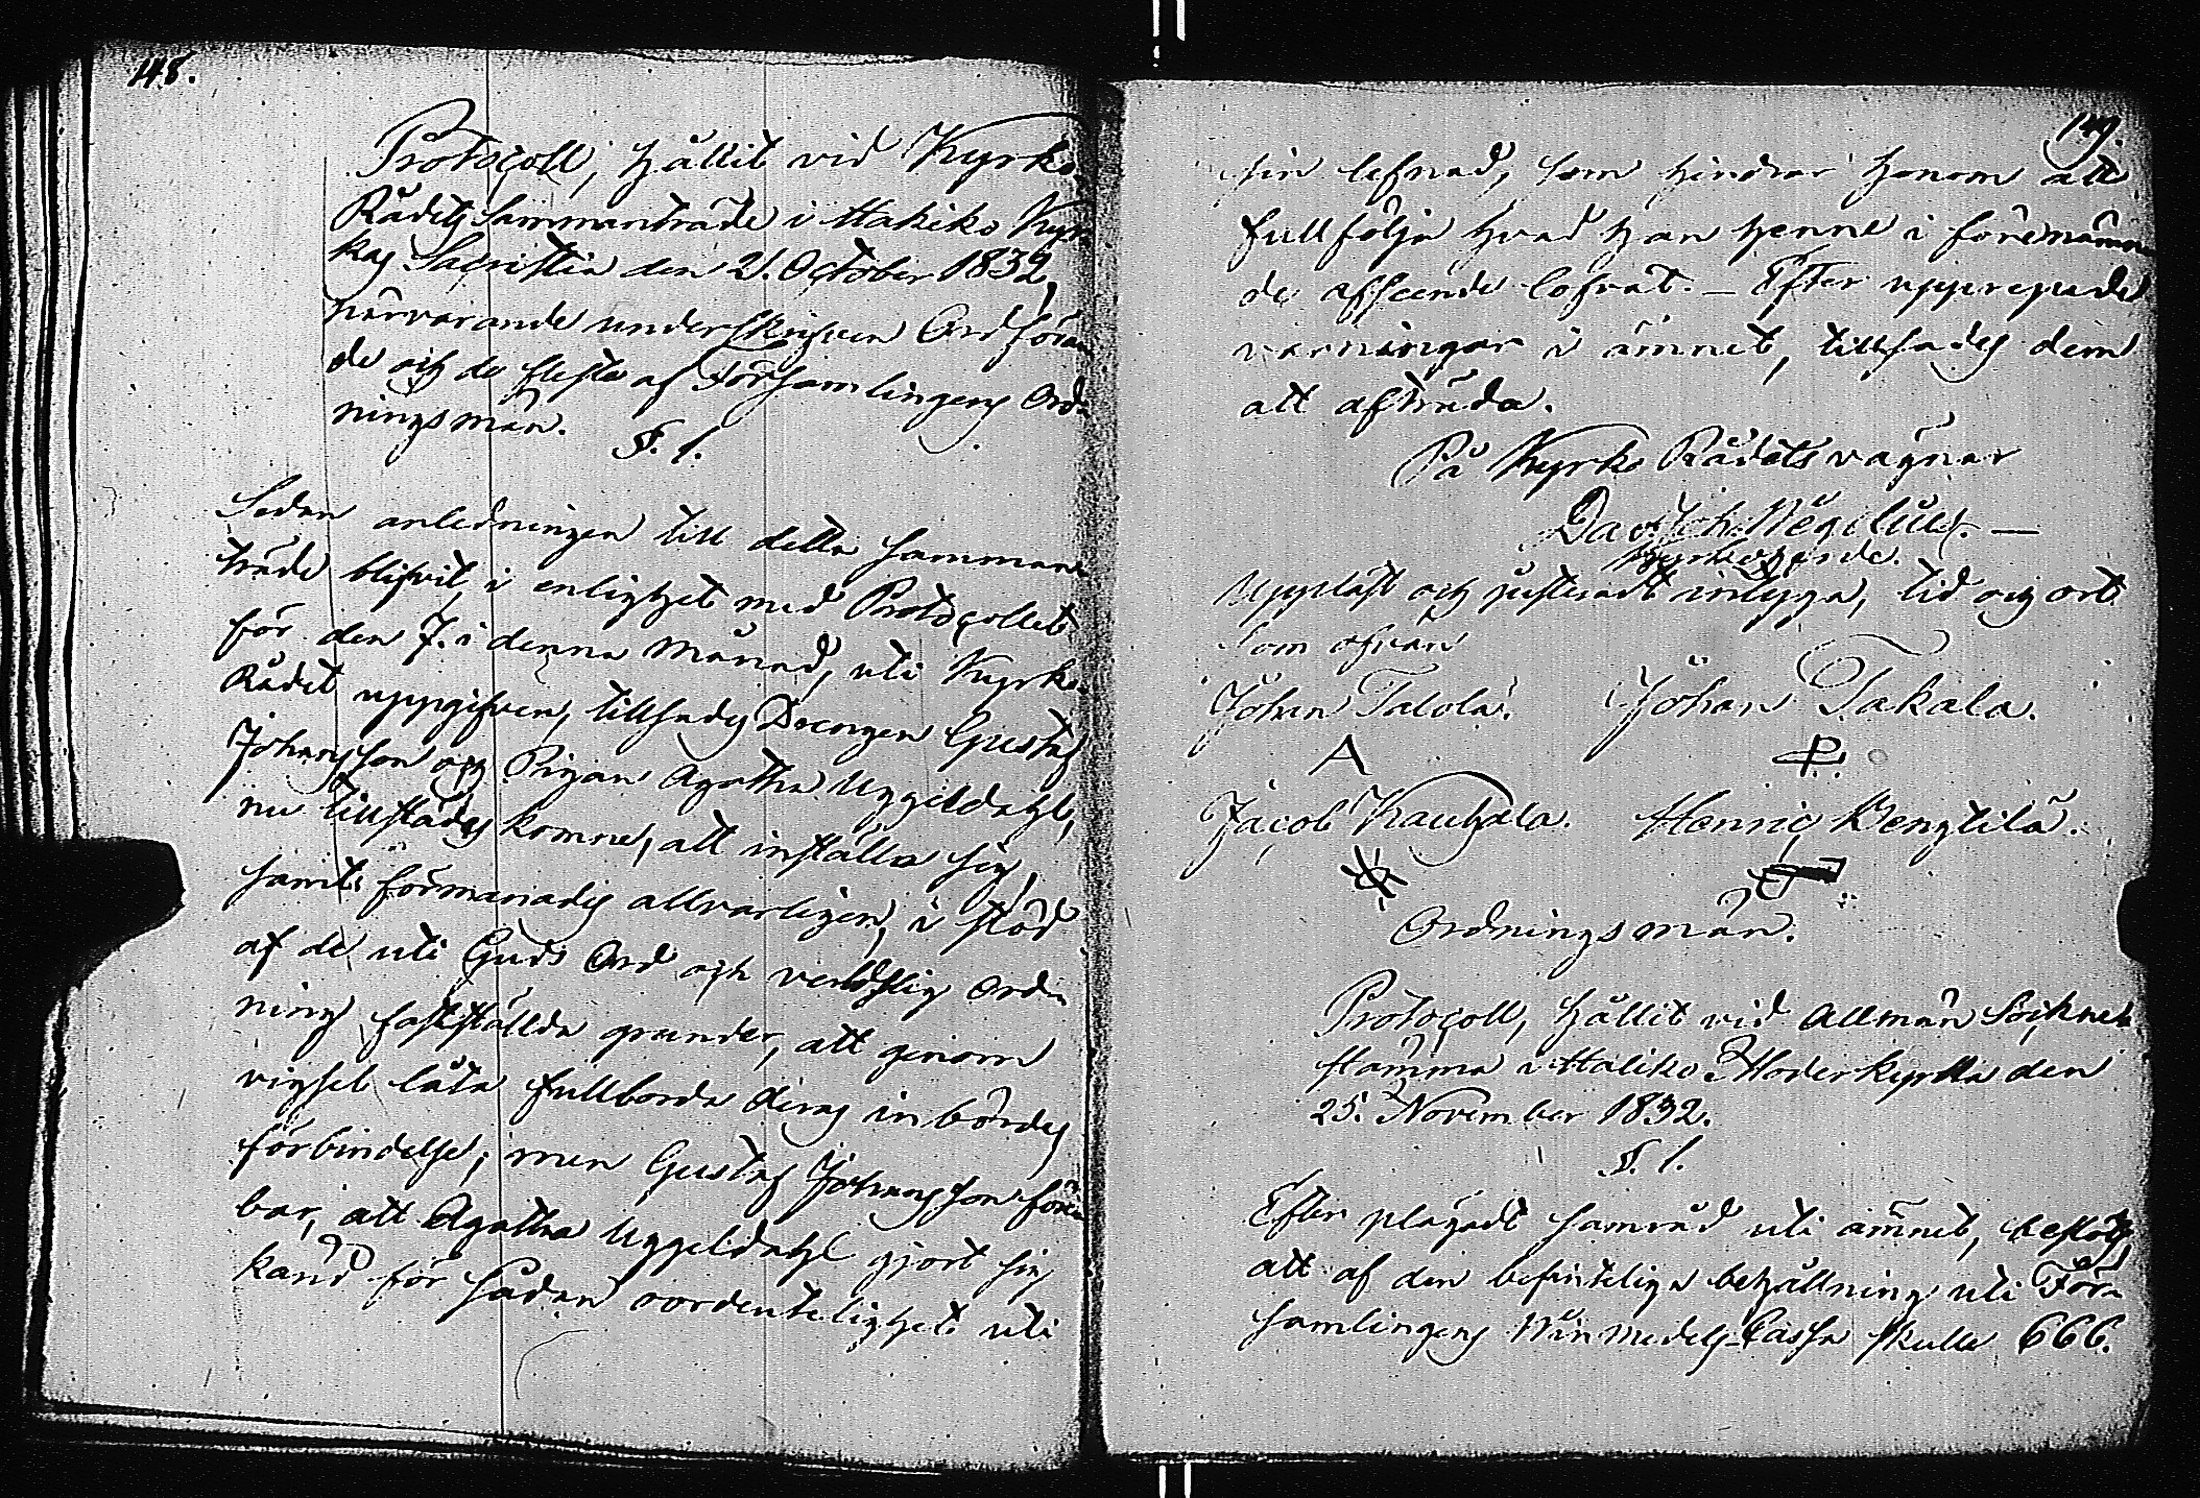 148.
Protocoll, hållit vid Kyrko
Rådets Sammanträde i Halikko Kyr
kas Sacristia den 21. October 1832,
närvarande underskrifven Ordföran
de och de fleste af Församlingens Ord
ningsmän.
§. 1.
Sedan anledningen till detta samman
träde blifvit, i enlighet med Protocollet
för den 7. i denna månad, uti Kyrko
Rådet uppgifven, tillsades Drengen Gustaf
Johansson och Pigan Agatha Uggeldahl,
nu tillstädes komne, att inställa sig,
samt förmanades allvarligen, i stöd
af de uti Guds Ord och verldslig Ord
ning fastställda grunder, att genom
vigsel låta fullborda deras inbördes
förbindelse; men Gustaf Johansson före
bar, att Agatha Uggeldahl gjort sig
känd för sådan oordentelighet uti
149.
sin lefnad, som hindrar honom att
fullfölja hvad han henne i förenämn
de afseende lofvat. – Efter upprepade
varningar i ämnet, tillsades dem
att afträda.
På Kyrko Rådets vägnar
Dav. Joh.
Kyrkoherde.
Uppläst och justeradt intyga, tid och ort
som ofvan
Johan Talola. Johan Takala.
A P.
Jacob Kauhala. Henric Bengtilä.
Ordningsmän.
Protocoll, hållit vid Allmän Sockne
stämma i Halikko Moderkyrka den
25. November 1832.
§. 1.
Efter plägadt samråd uti ämnet, beslöts
att af den befinteliga behållning uti För
samlingens Vin Medels-Cassa skulle 666.